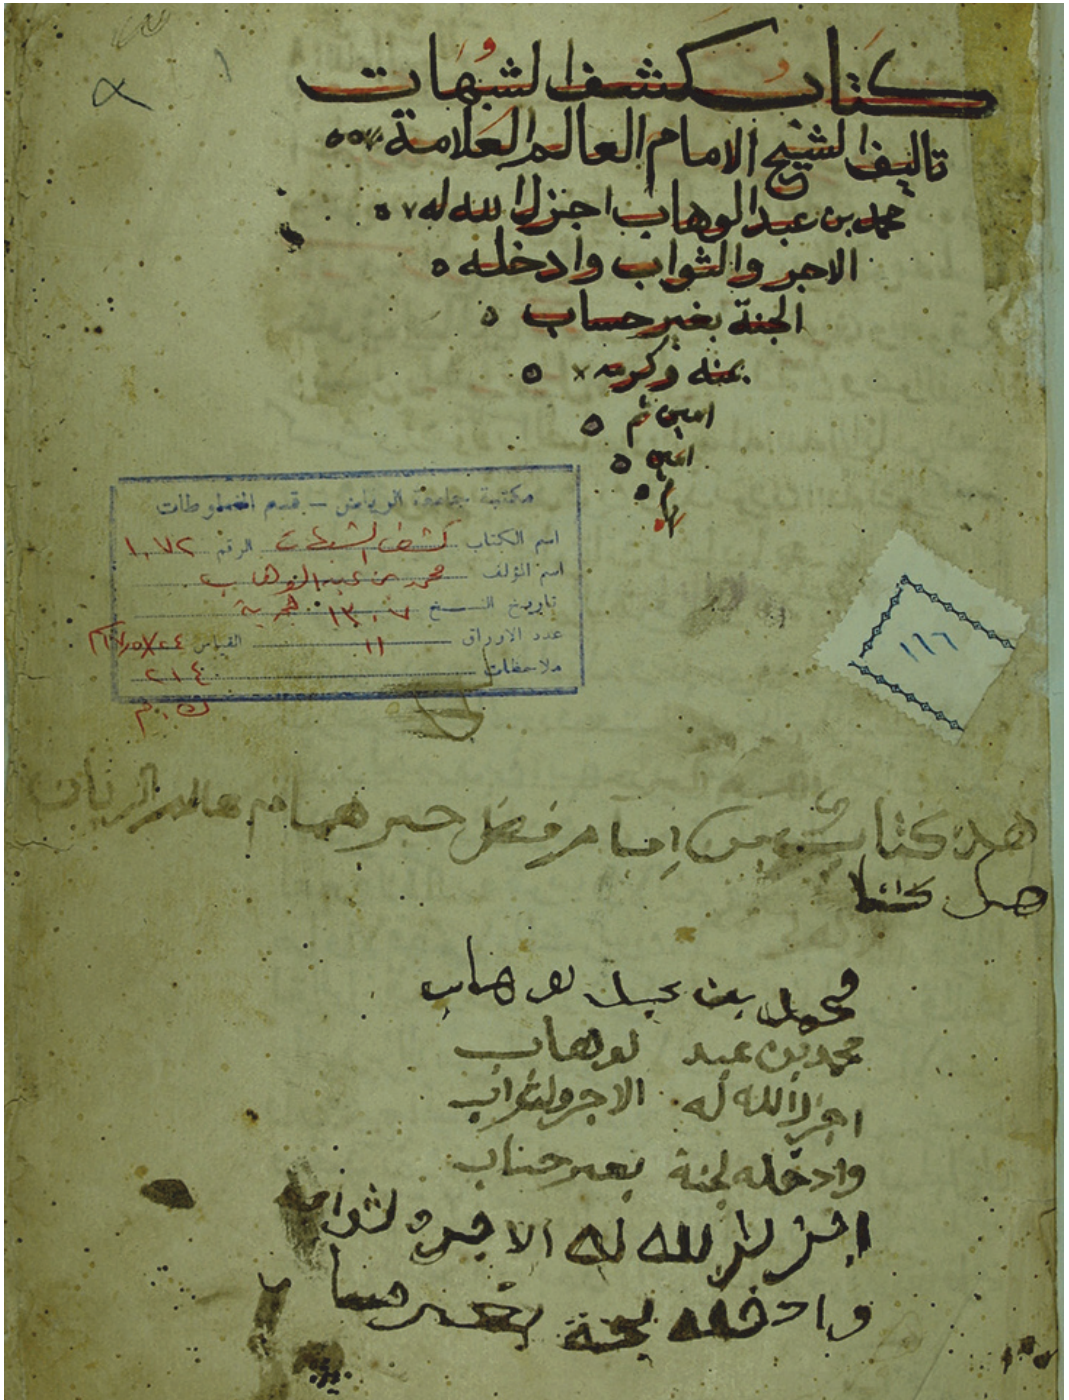 كتاب كشف الشبهات
تاليف الشيخ الامام العالم العلامة
محمد بن عبد الوهاب اجزل الله له
الاجر والثواب وادخله
الجنة بغير حساب
بمنه وكرمه
امين ثم
امين
مكتبة جامعة الرياض – قسم المخطوطات
اسم الكتاب كشف الشبهات الرقم ١٠٧٢
اسم المؤلف محمد بن عبد الوهاب
تاريخ النسخ ١٣٠٧ هجرية
عدد الاوراق ١١ القياس
ملاحظات ٢١٤
١١٦
هذا كتاب من امام فضل حبر همام عالم الربان
محمد بن عبد لوهاب
محمد بن عبد لوهاب
اجزل الله له الاجر ولثواب
وادخله لجنة بغير حساب
اجزل لله له الاجر ولثواب
وادخله لجنة بغير حسا